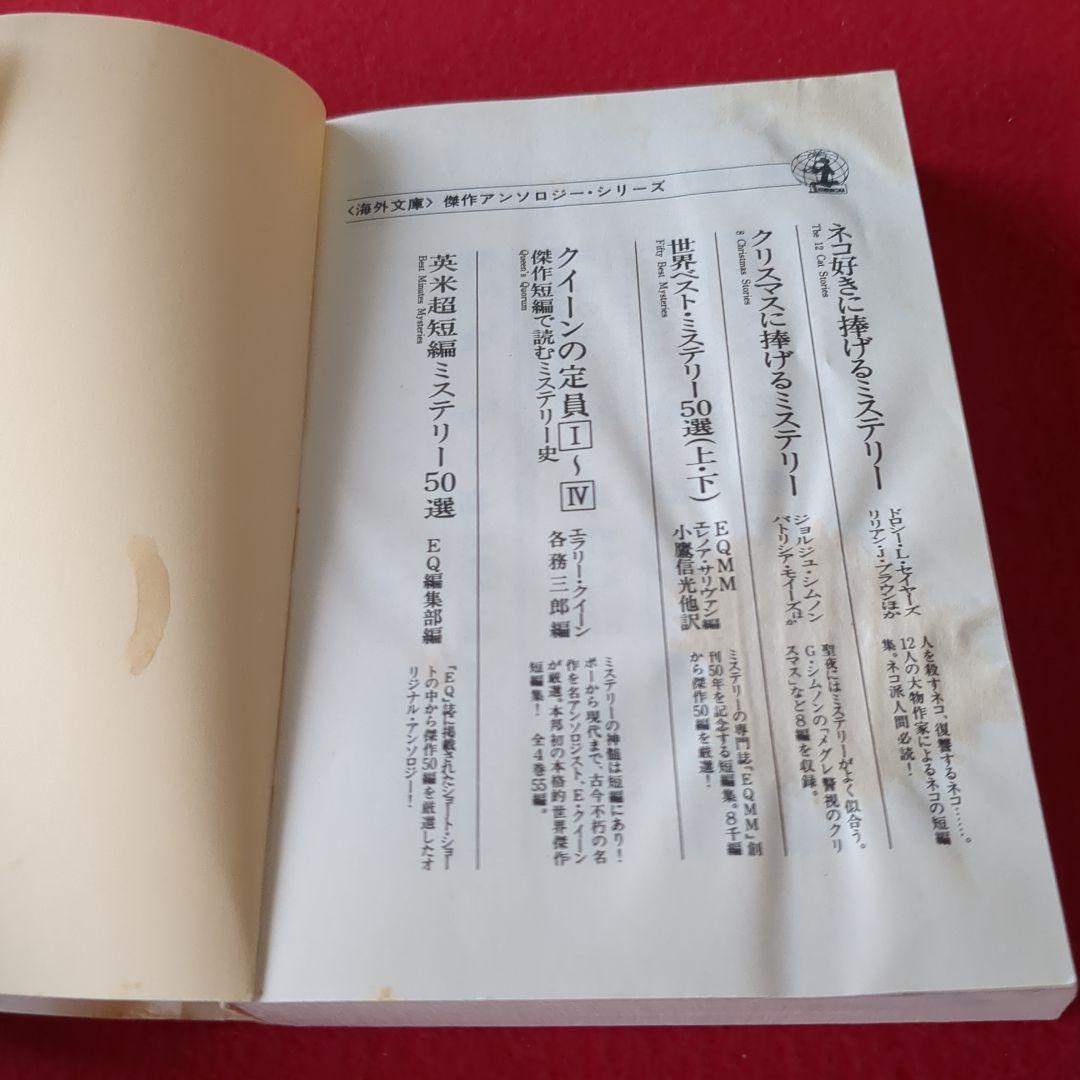 〈海外文庫〉 傑作アンソロジー・シリーズ
ネコ好きに捧げるミステリー
The 12 Cat Stories
ドロシー・L・セイヤーズ
リリアン・J・ブラウンほか
人を殺すネコ、復讐するネコ……。
12人の大物作家によるネコの短編
集。ネコ派人間必読！
クリスマスに捧げるミステリー
8 Christmas Stories
ジョルジュ・シムノン
パトリシア・モイーズほか
聖夜にはミステリーがよく似合う。
G・シムノンの「メグレ警視のクリ
スマス」など8編を収録。
世界ベスト・ミステリー50選(上・下)
Fifty Best Mysteries
EQMM
エレノア・サリヴァン編
小鷹信光他訳
ミステリーの専門誌「EQMM」創
刊50年を記念する短編集。8千編
から傑作50編を厳選！
クイーンの定員Ⅰ～Ⅳ
傑作短編で読むミステリー史
Queen's Quorum
エラリー・クイーン
各務三郎編
ミステリーの神髄は短編にあり！
ポーから現代まで、古今不朽の名
作を名アンソロジスト、E・クイーン
が厳選。本邦初の本格的世界傑作
短編集！ 全4巻55編。
英米超短編ミステリー50選
Best Minutes Mysteries
EQ編集部編
『EQ』誌に掲載されたショート・ショー
トの中から傑作50編を厳選したオ
リジナル・アンソロジー！